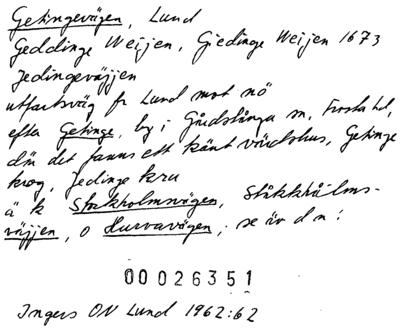 Getingevägen, Lund
Geddinge Weijen, Giedinge Weijen 1673
Jedingeväjjen
utfartsväg fr Lund mot nö
efter Getinge, by i Gårdstånga sn, Frosta hd,
där det fanns ett känt värdshus, Getinge
krog, Jedinge kru
ä k Stockholmsvägen, Ståkkhålms-
väjjen, o Hurvavägen; se äv d n:
00026351
Ingers ON Lund 1962:62